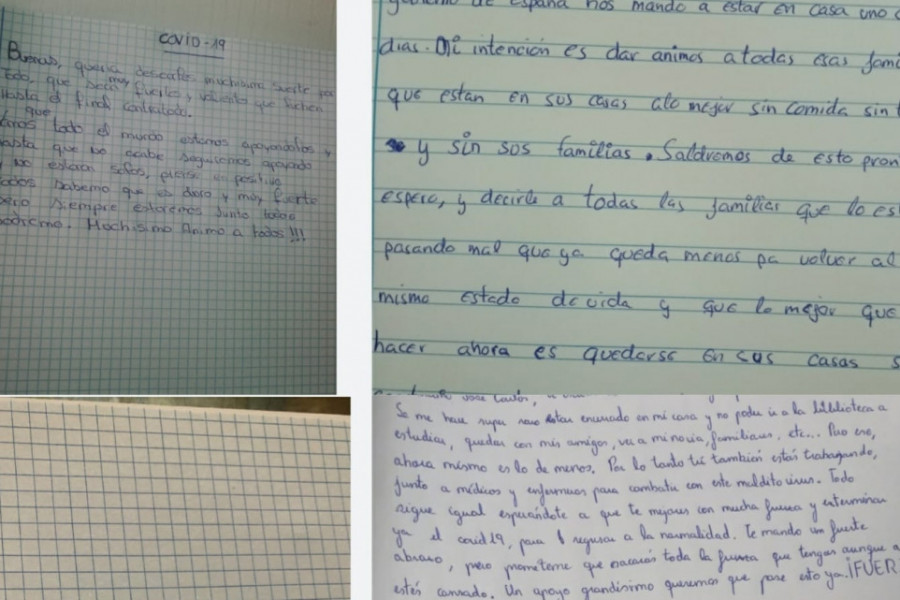 COVID-19
Buenas, quería desearles muchisima suerte por
todo, que sean muy fuertes, que luchen
hasta el final
que
todo el mundo estamos apoyandolos y
hasta que no acabe seguiremos apoyando
y no estaran solos, piense en positivo
todos sabemo que es duro y muy fuerte
pero siempre estaremos junto todos
podremo. Muchisimo Animo a todos!!!
gobierno de españa nos mando a estar en casa uno
dias. Mi intención es dar animos a todas esas fami
que estan en sus casas alo mejor sin comida sin
y sin sos familias. Saldremos de esto pron
espero, y decirle a todas las familias que lo es
pasando mal que ya queda menos pa volver al
mismo estado de vida y que lo mejor que
hacer ahora es quedarse en sus casas s
Se me hace super raro estar encerrado en mi casa y no poder ir a la biblioteca a
estudiar, quedar con mis amigos, ver a mi novia, familiares, etc... Pero eso,
ahora mismo es lo de menos. Por lo tanto tú también estás trabajando,
junto a médicos y enfermeros para combatir con este maldito virus. Todo
sigue igual esperándote a que te mejores con mucha fuerza y exterminar
ya el covid19, para regresar a la normalidad. Te mando un fuerte
abrazo, pero prometeme que sacarás toda la fuerza que tengas aunque
estés cansado. Un apoyo grandísimo queremos que pase esto ya. ¡FUER